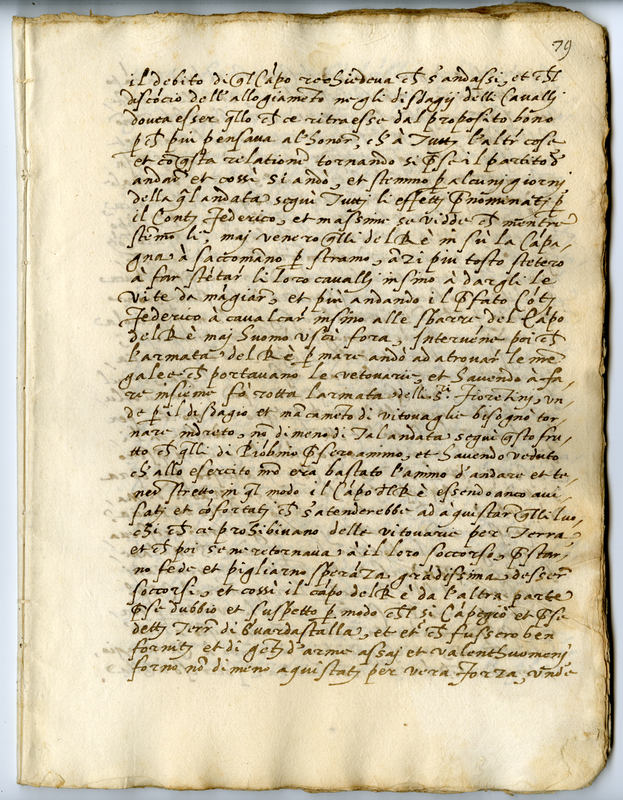 79
il debito di ql Cãpo rechiedeva ch̃ s'andassi, et ch̃l
discõcio dell'allogiamẽto negli disdagij delli Cavallj
dovea esser q̃llo ch̃ ce ritraesse dal proposito bõno
p ch̃ piu pensava al honor, ch̃ à Tutti l'altr cose
et cõ q̃sta relatione tornando si p̃se il partito d'
andar et cossi si andò, et stemmo p alcunj giornj
della ql andata seguì Tuttj li effettj p̃nominatj p
il Contj Federico, et massime se vidde ch̃ mentre
stẽmo lì, maj venero q̃lli del Rè in sù la Cãpa,
gna, à saccomano p strame, ãzi piu tosto stetero
à far stẽtar li loro cavallj insino à dargli le
vite da mãgiar, et piu andando il p̃fato Cõtj
Federico à cavalcar insino alle sbarre del Cãpo
del Rè maj huomo uscì fora, Intervẽne poi ch̃
l'armata del Rè p mare andò ad atrovar le nrẽ
galee ch̃ portavano le vetovarie, et havendo à fa,
re insieme fò rotta l'armata delli S.ri Fiorẽtinj, un,
de p il disdagio et mãcamẽto di vitovaglie bisognò tor,
nare indreto, nõ dimeno di Tal andata seguì q̃sto fru,
tto ch̃ q̃lli di Piõbino p̃sero ammo, et havendo veduto
ch̃ allo esercito nrõ era bastato l'animo d'andare et te,
ner stretto in ql modo il Cãpo del Rè essendo anco avi,
sati et cõfortati ch̃ s'atenderebbe ad aquistar q̃lli luo,
chi ch̃ ce prohibivano delle vitovarie per Terra
et ch̃ poi se ne retornava à il loro soccorso, p̃star,
no fede et pigliarno sperãza grãdissima d'esser
soccorsi, et cossì il cãpo del Rè da l'altra parte
p̃se dubbio et suspetto p modo ch̃l si Cãpegiò et p̃se
dettj Terr di Guardastalla, et et ch̃ fussero ben
fornitj et di gẽtj d'arme assaj et valenthuomenj
forno nõ dimeno aquistatj per vera forza, unde